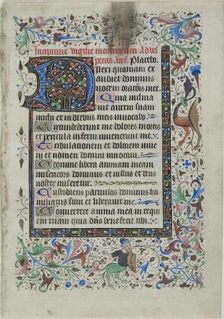 Incipiunt vigilie mortuorum Ad ves
peras Ant. Placebo
Dilexi quoniam ex
audiet dominus
vocem orationis mee
Quia inclina
vit aurem suam
michi et in diebus meis invocabo
Circumdederunt me dolores mortis
et pericula inferni invenerunt me
Tribulationem et dolorem inve
ni et nomen domini invocavi
O domine libera animam meam
misericors dominus et iustus et deus
noster miseretur
Custodiens parvulos dominus hu
miliatus sum et liberavit me
Convertere anima mea in requi
em tuam quia dominus benefecit tibi